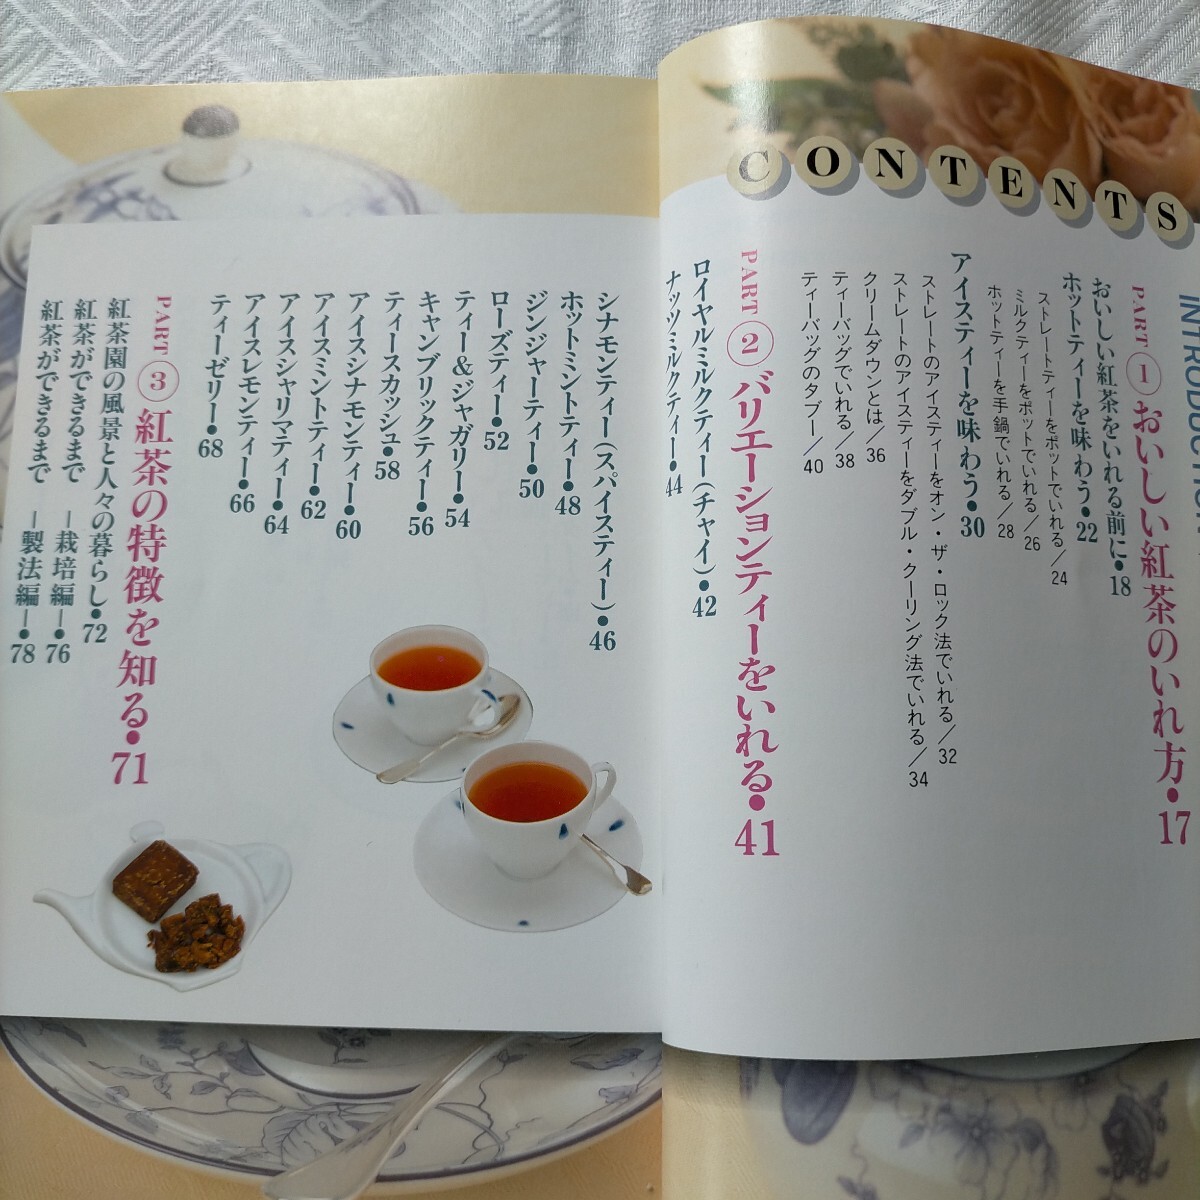 CONTENTS
PART 1 おいしい紅茶のいれ方●17
おいしい紅茶をいれる前に●18
ホットティーを味わう●22
ストレートティーをポットでいれる/24
ミルクティーをポットでいれる/26
ホットティーを手鍋でいれる/28
アイスティーを味わう●30
ストレートのアイスティーをオン・ザ・ロック法でいれる/32
ストレートのアイスティーをダブル・クーリング法でいれる/34
クリームダウンとは/36
ティーバッグでいれる/38
ティーバッグのタブー/40
PART 2 バリエーションティーをいれる●41
ロイヤルミルクティー(チャイ)●42
ナッツミルクティー●44
シナモンティー(スパイスティー)●46
ホットミントティー●48
ジンジャーティー●50
ローズティー●52
ティー&ジャガリー●54
キャンブリックティー●56
ティースカッシュ●58
アイスシナモンティー●60
アイスミントティー●62
アイスシャリマティー●64
アイスレモンティー●66
ティーゼリー●68
PART 3 紅茶の特徴を知る●71
紅茶園の風景と人々の暮らし●72
紅茶ができるまで ―栽培編―●76
紅茶ができるまで ―製法編―●78